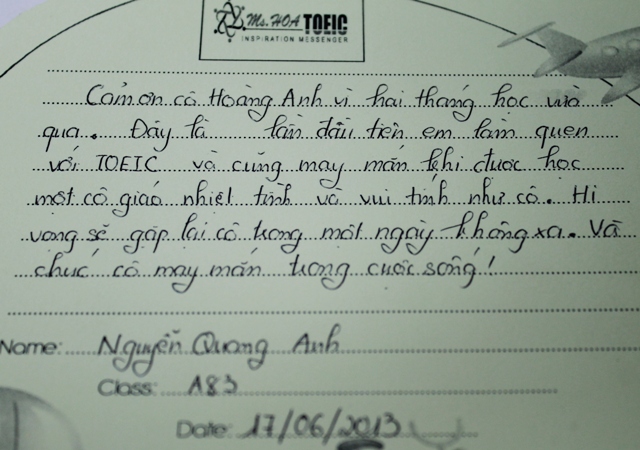 Ms. HOA TOEIC
INSPIRATION MESSENGER
Cảm ơn cô Hoàng Anh vì hai tháng học vừa
qua. Đây là lần đầu tiên em làm quen
với TOEIC và cũng may mắn khi được học
một cô giáo nhiệt tình và vui tính như cô. Hi
vọng sẽ gặp lại cô trong một ngày không xa. Và
chúc cô may mắn trong cuộc sống!
Name: Nguyễn Quang Anh
Class: A83
Date: 17/06/2013